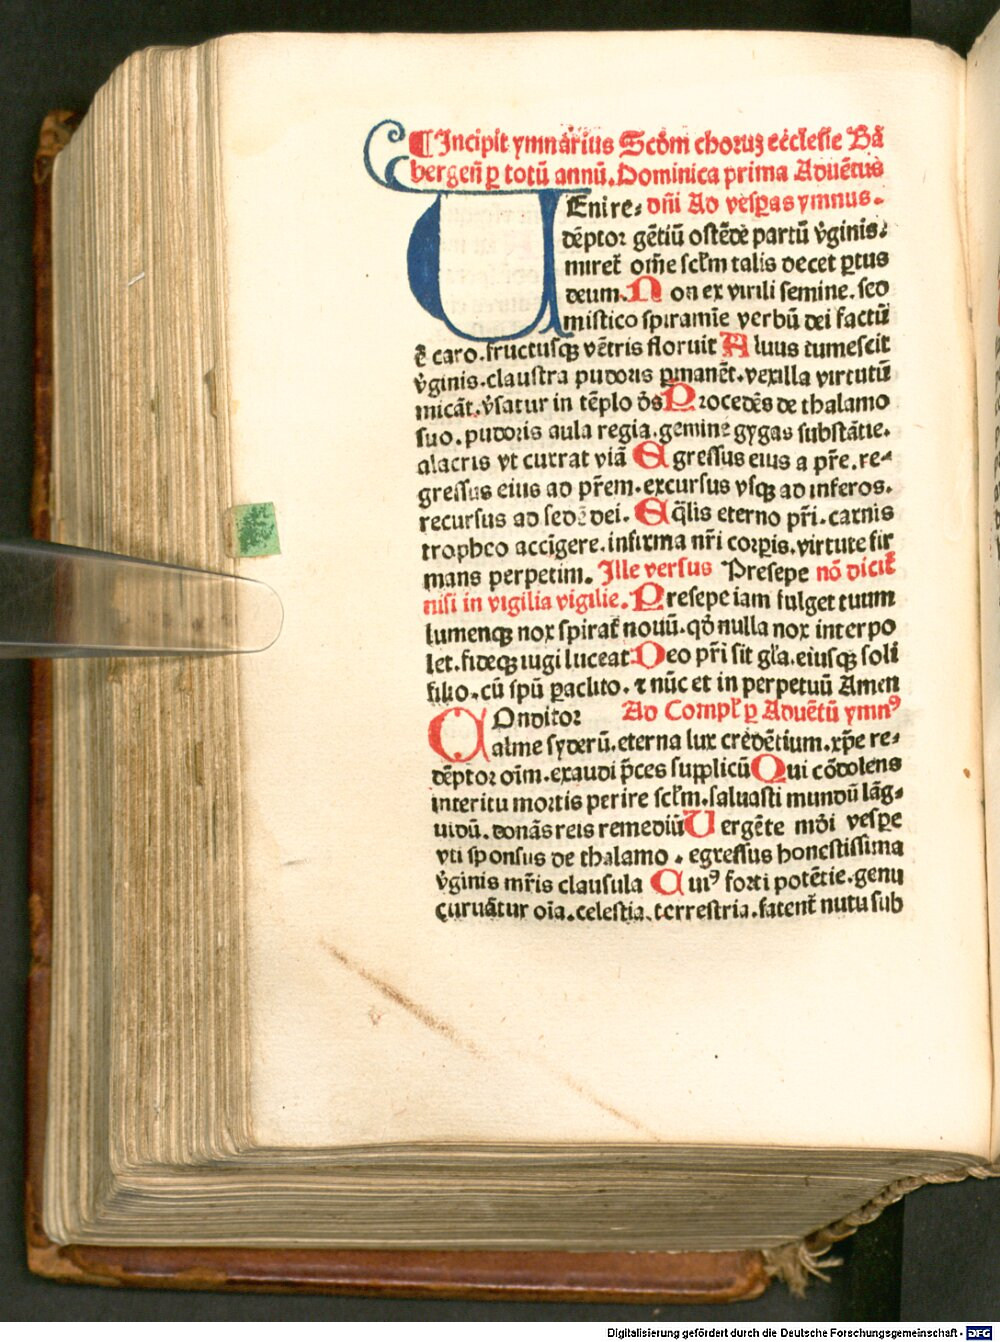 ¶Incipit ymnarius Scd̄m choruꝫ ecclesie Bā
bergeñ ꝑ totū annū. Dominica prima Aduētus
UEnire⸗ dn̄i Ad vesꝑas ymnus.
dēptor gētiū ostēde partū v̄ginis.
miret᷑ om̄e sclm̄ talis decet ꝑtus
deum. Non ex virili semine. sed
mistico spiramīe verbū dei factū
ē caro. fructusqꝫ vētris floruit Aluus tumescit
v̄ginis. claustra pudoris ꝑmanēt. vexilla virtutū
micāt. v̄satur in tēplo d̄s Procedēs de thalamo
suo. pudoris aula regia. gemine gygas substātie.
alacris vt currat viā Egressus eius a pr̄e. re⸗
gressus eius ad pr̄em. excursus vsqꝫ ad inferos.
recursus ad sedē dei. Eq̄lis eterno pr̄i. carnis
tropheo accīgere. infirma nr̄i corꝑis. virtute fir
mans perpetim. Ille versus Presepe nō dicit᷑
nisi in vigilia vigilie. Presepe iam fulget tuum
lumenqꝫ nox spirat᷑ nouū. qd̄ nulla nox interpo
let. fideqꝫ iugi luceat Deo pr̄i sit gl̄a. eiusqꝫ soli
filio. cū spū ꝑaclito. ⁊ nūc et in perpetuū Amen
COnditor Ad Compl᷑ ꝑ Aduētū ymnꝰ
alme syderū. eterna lux credētium. xp̄e re⸗
dēptor oīm. exaudi p̄ces supplicū Qui cōdolens
interitu mortis perire sclm̄. saluasti mundū lāg⸗
uidū. donās reis remediū Uergēte mōi vesꝑe
vti sponsus de thalamo. egressus honestissima
v̄ginis mr̄is clausula Cuiꝰ forti potētie. genu
curuātur oīa. celestia. terrestria. fatent᷑ nutu sub
Digitalisierung gefördert durch die Deutsche Forschungsgemeinschaft - DFG